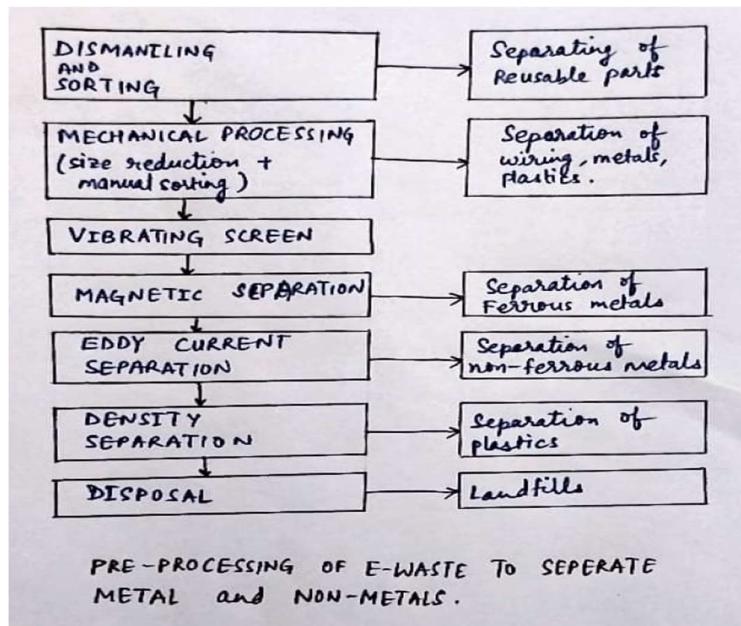 DISMANTLING
AND
SORTING
Separating of
Reusable parts
MECHANICAL PROCESSING
(size reduction +
manual sorting)
Separation of
wiring, metals,
plastics.
VIBRATING SCREEN
MAGNETIC SEPARATION
Separation of
Ferrous metals
EDDY CURRENT
SEPARATION
Separation of
non-ferrous metals
DENSITY
SEPARATION
Separation of
plastics
DISPOSAL
Landfills
PRE-PROCESSING OF E-WASTE TO SEPERATE
METAL and NON-METALS.